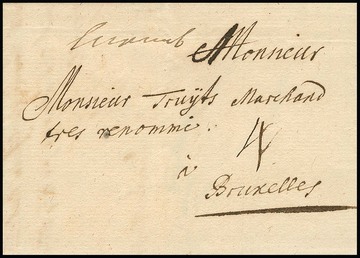 Monsieur
Monsieur Truyts Marchand
tres renommé
4
à
Bruxelles